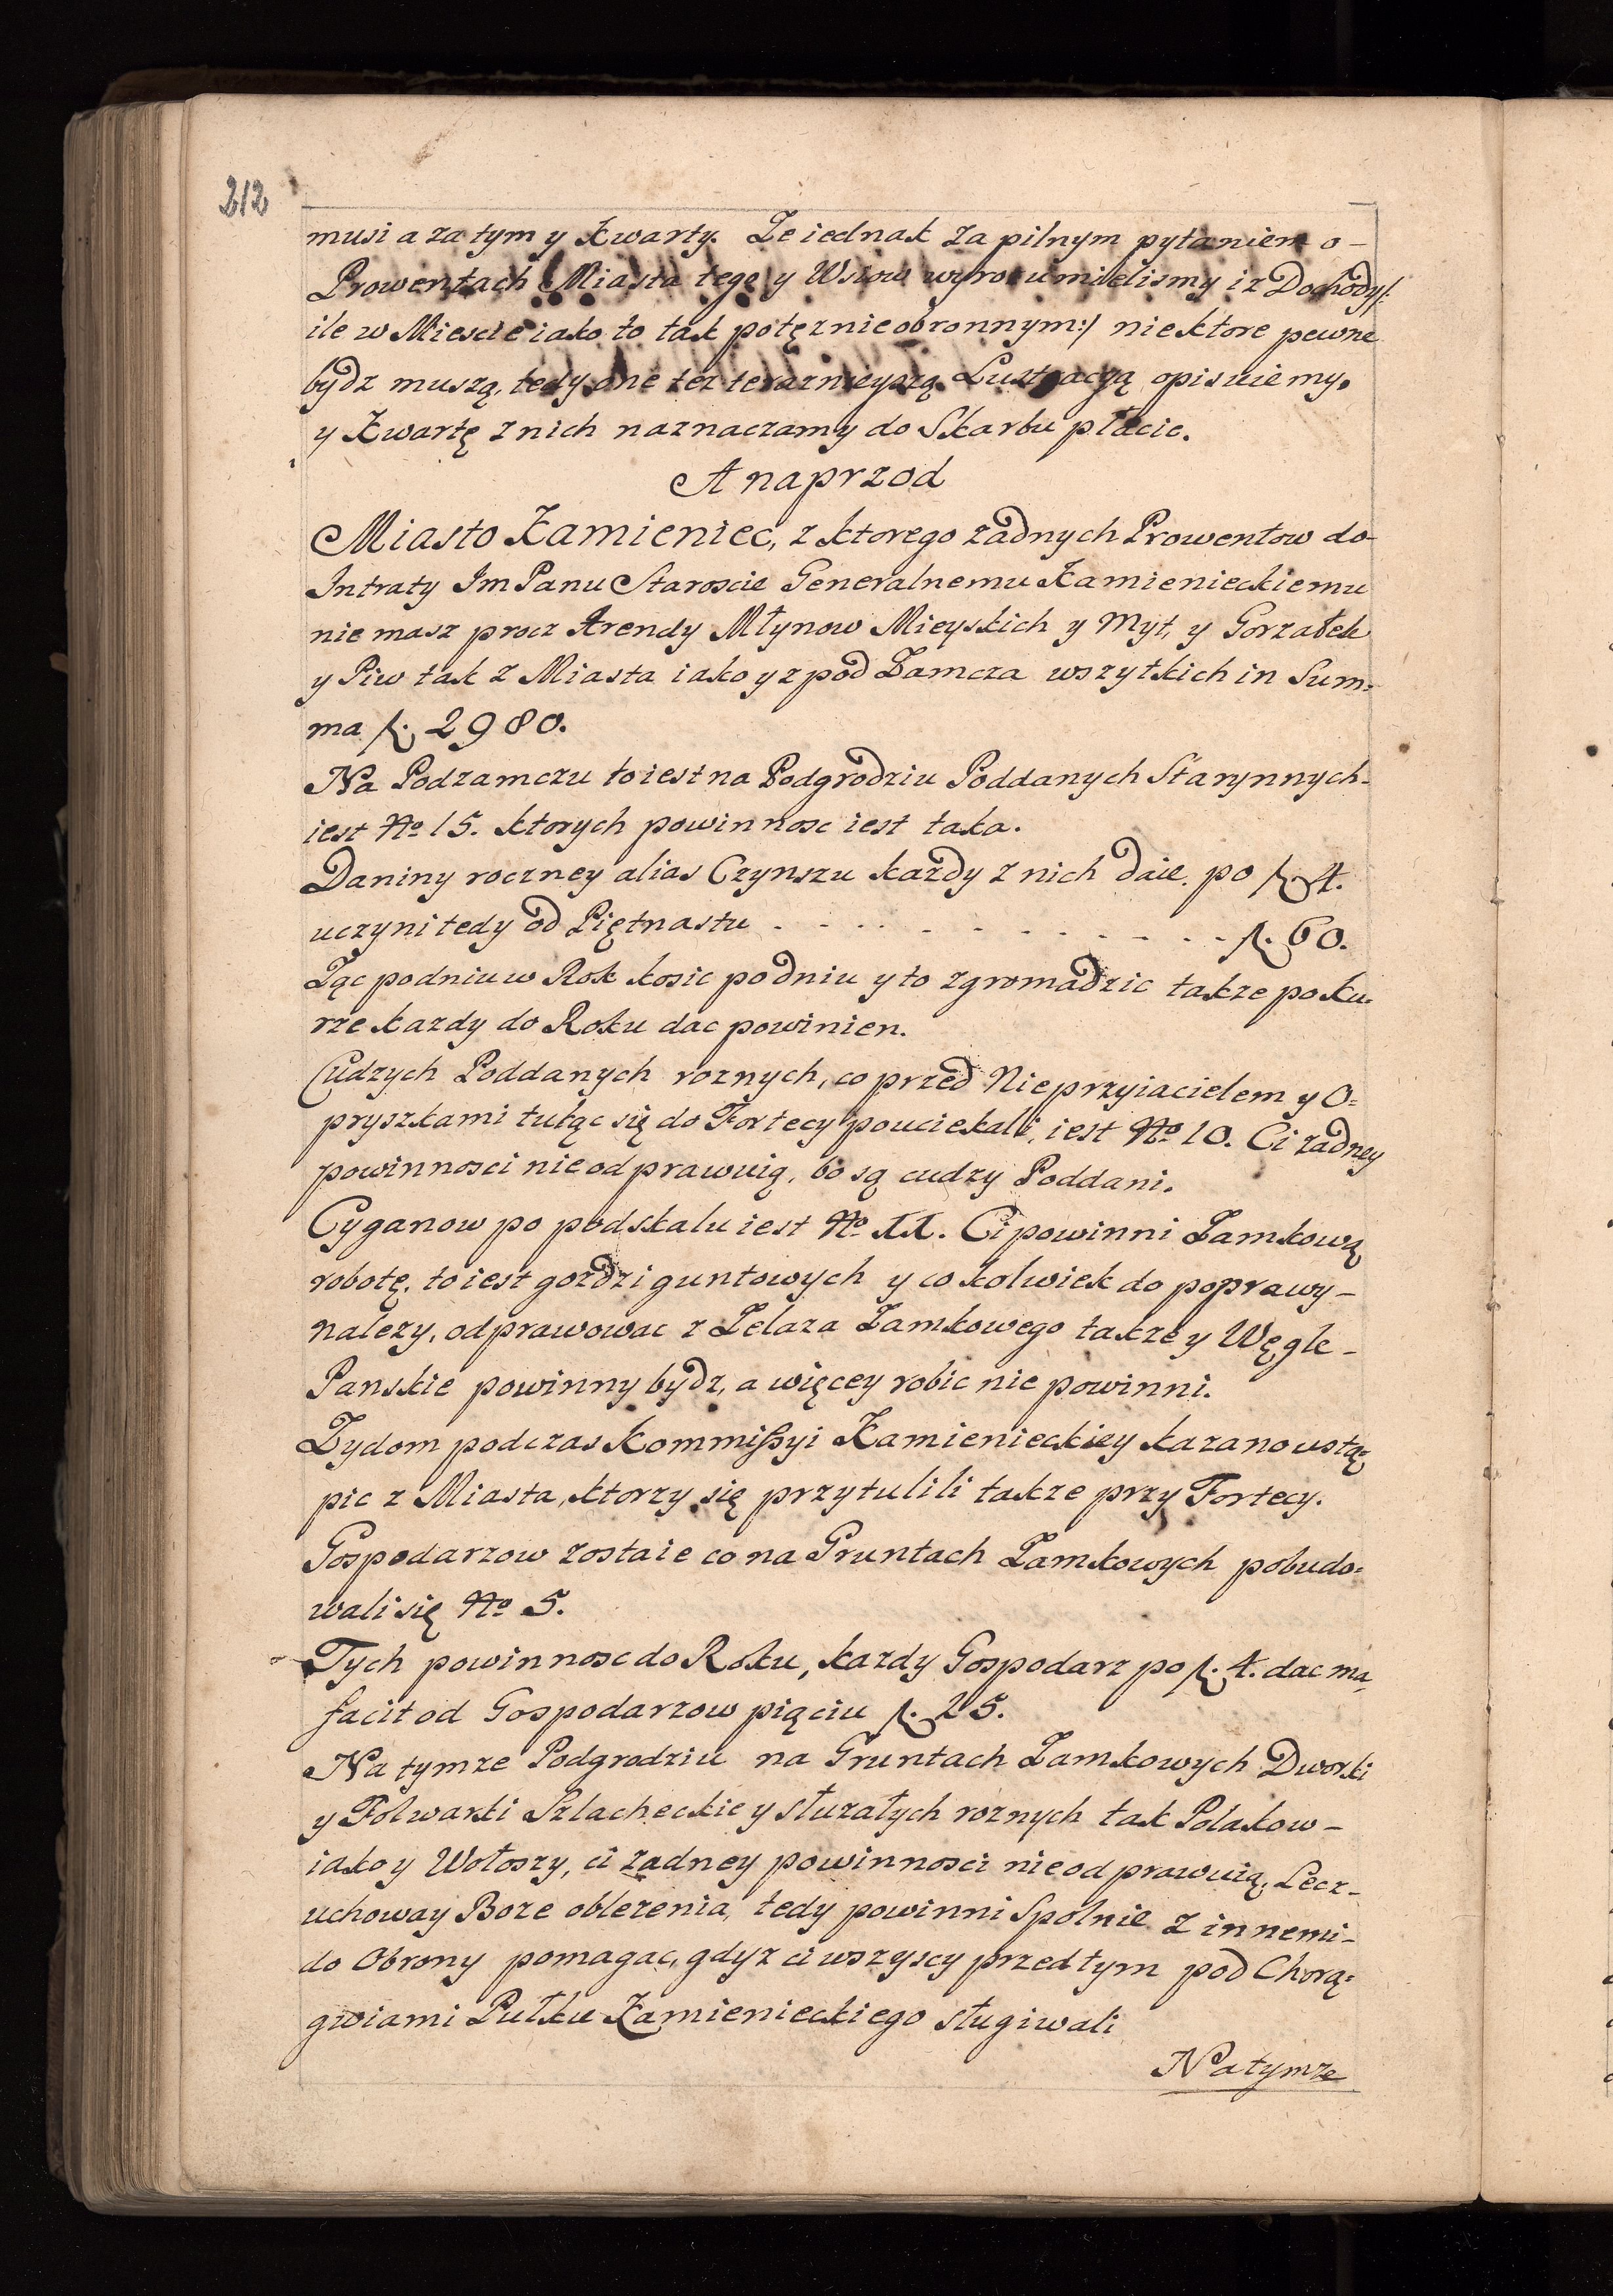 212
musi a za tym y Kwarty. Że iednak za pilnym pytaniem o-
Prowentach Miasta tego y Wsiow wyrozumielismy iz Dochody/:
ile w Miescie iako to tak potęznie obronnym:/ niektore pewne
bydz muszą, tedy one tez terazniejszą Lustracyą opisuiemy,
y Kwartę z nich naznaczamy do Skarbu płacic.
A naprzod
Miasto Kamieniec, z ktorego żadnych Prowentow do-
Intraty Im Panu Staroscie Generalnemu Kamienieckiemu
nie masz procz Arendy Młynow Mieyskich y Myt, y Gorzałek
y Piw tak z Miasta iako y z pod Zamcza wszytkich in Sum=
ma f. 2980.
Na Podzamczu to iest na Podgrodziu Poddanych Starynnych-
iest No 15. ktorych powinnosc iest taka.
Daniny roczney alias Czynszu kazdy z nich daie po f. 4.
uczyni tedy od Piętnastu . - . . . - . - . - . - . - f. 60.
Ząc podniu w Rok kosic po dniu y to zgromadzic takze po ku=
rze kazdy do Roku dac powinien.
Cudzych Poddanych roznych, co przed Nieprzyiacielem y O=
pryszkami tułąc się do Fortecy pouciekali, iest No 10. Ci żadney
powinnosci nie odprawuią, bo są cudzy Poddani.
Cyganow po podskalu iest No XX. Ci powinni Zamkową
robotę, to iest gozdzi guntowych y cokolwiek do poprawy-
nalezy, odprawowac z Zelaza Zamkowego takze y Węgle-
Panskie powinny bydz, a więcey robic nie powinni.
Zydom podczas Kommissyi Kamienieckiey kazano ustą=
pic z Miasta, ktorzy się przytulili takze przy Fortecy.
Gospodarzow zostaie co na Gruntach Zamkowych pobudo=
wali się No 5.
Tych powinnosc do Roku, kazdy Gospodarz po f. 4. dac ma,
facit od Gospodarzow piąciu f. 25.
Na tymze Podgrodziu na Gruntach Zamkowych Dworki
y Folwarki Szlacheckie y słuzałych roznych tak Polakow-
iako y Wołoszy, ci żadney powinnosci nie odprawuią, Lecz-
uchoway Boze oblezenia, tedy powinni Spolnie z innemi-
do Obrony pomagac, gdyz ci wszyscy przedtym pod Chorą=
gwiami Pułku Kamienieckiego sługiwali
Na tymze